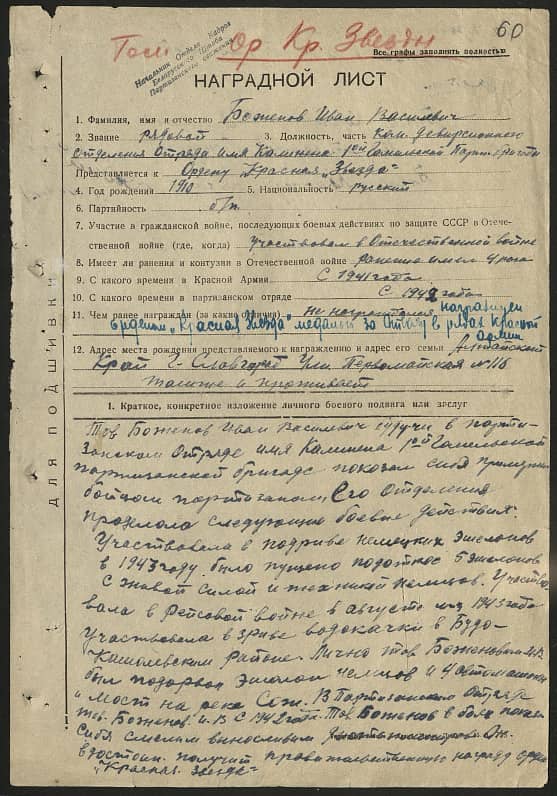 60
Ор Кр. Звезды
Начальник Отдела Кадров
Белорусского Штаба
Партизанского движения
Все графы заполнить полностью
НАГРАДНОЙ ЛИСТ
1. Фамилия, имя и отчество Боженов Иван Василевич
2. Звание рядовой 3. Должность, часть ком. диверсионного
отделения Отряда имя Калинина 1ой Гомельской Парт. бригады
Представляется к Ордену "Красная Звезда"
4. Год рождения 1910 5. Национальность русский
6. Партийность б/п
7. Участие в гражданской войне, последующих боевых действиях по защите СССР в Отече-
ственной войне (где, когда) участвовал в Отечественной войне
8. Имеет ли ранения и контузии в Отечественной войне ранение имел
9. С какого времени в Красной Армии С 1941 года
10. С какого времени в партизанском отряде С 1942 года
11. Чем ранее награжден (за какие отличия) не награждался награжден
орденом „Красная Звезда" медалью за Отвагу в рядах красной
армии
12. Адрес места рождения представляемого к награждению и адрес его семьи Алтайский
Край г-Славгород Ул. Первомайская № 116
там же и проживает
ДЛЯ ПОДШИВКИ
1. Краткое, конкретное изложение личного боевого подвига или заслуг
Тов. Боженов Иван Василевич будучи в парти-
занском Отряде имя Калинина 1ой Гомельской
партизанской бригаде показал себя примерным
бойцом партизаном, Его Отделения
проделола следующие боевые действия.
Участвовала в подриве немецких эшелонов
в 1943 году было пущено подоткос 5 эшелонов
с живой силой и техникой немцов. Участво-
вала в Релсовой войне в августе м-ц 1943 года
Участвовала в зриве водокачки в Будо-
Кошолевским районе. Лично тов Боженовым И.В.
был подорван эшолон немцов и 4 автомашины
и мост на реке Сож. В Партизанском Отряде
тов. Боженов И.В. с 1942 года. Тов Боженов в боях показал
себя смелым выносливым
достоин получит правителственную награду орден
„Красная звезда"